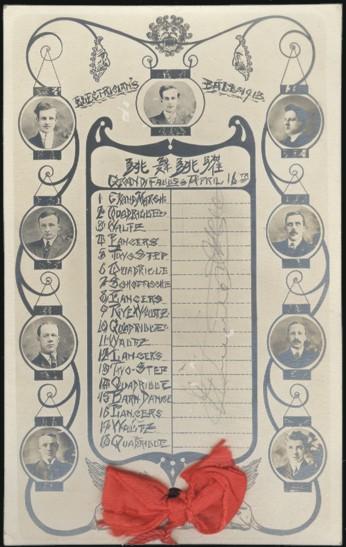 ELECTRICIAN'S BALL 1913.
跳舞跳躍
GRAND FALLS APRIL 16TH
1 GRAND MARCH
2 QUADRILLE
3 WALTZ
4 LANCERS
5 TWO STEP
6 QUADRILLE
7 SCHOTTISCHE
8 LANCERS
9 RYE WALTZ
10 QUADRILLE
11 WALTZ
12 LANCERS
13 TWO-STEP
14 QUADRILLE
15 BARN DANCE
16 LANCERS
17 WALTZ
18 QUADRILLE